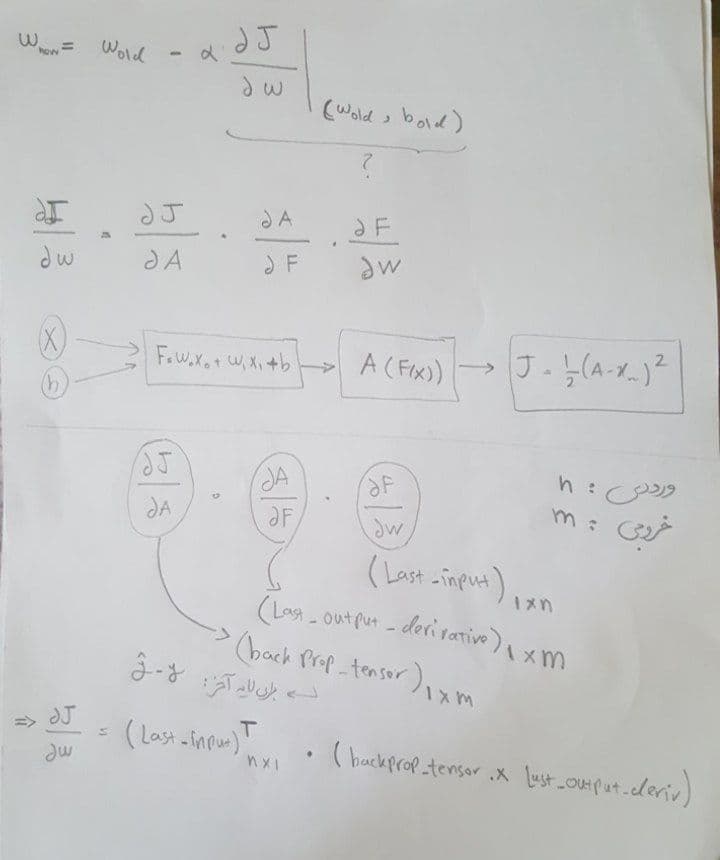 W_new = W_old - α ∂J/∂w |(w_old, b_old)
?
∂J/∂w = ∂J/∂A · ∂A/∂F · ∂F/∂W
X
b
F = W₀X₀ + W₁X₁ + b → A(F(x)) → J = ½(A - X_m)²
∂J/∂A · ∂A/∂F · ∂F/∂w
ورودی : n
خروجی : m
(Last_input)₁ₓₙ
(Last_output_derivative)₁ₓₘ
(back prop_tensor)₁ₓₘ
برای لایه آخر: ŷ-y
⇒ ∂J/∂w = (Last_input)ᵀₙₓ₁ · (backprop_tensor .x Last_output_deriv)